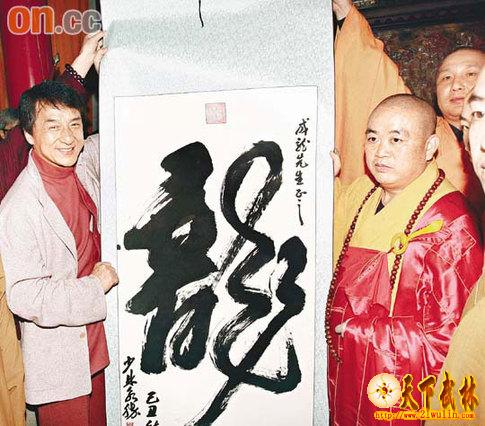 on.cc
成龙先生正之
龍
己丑
少林
天下武林
http://www.21wulin.com